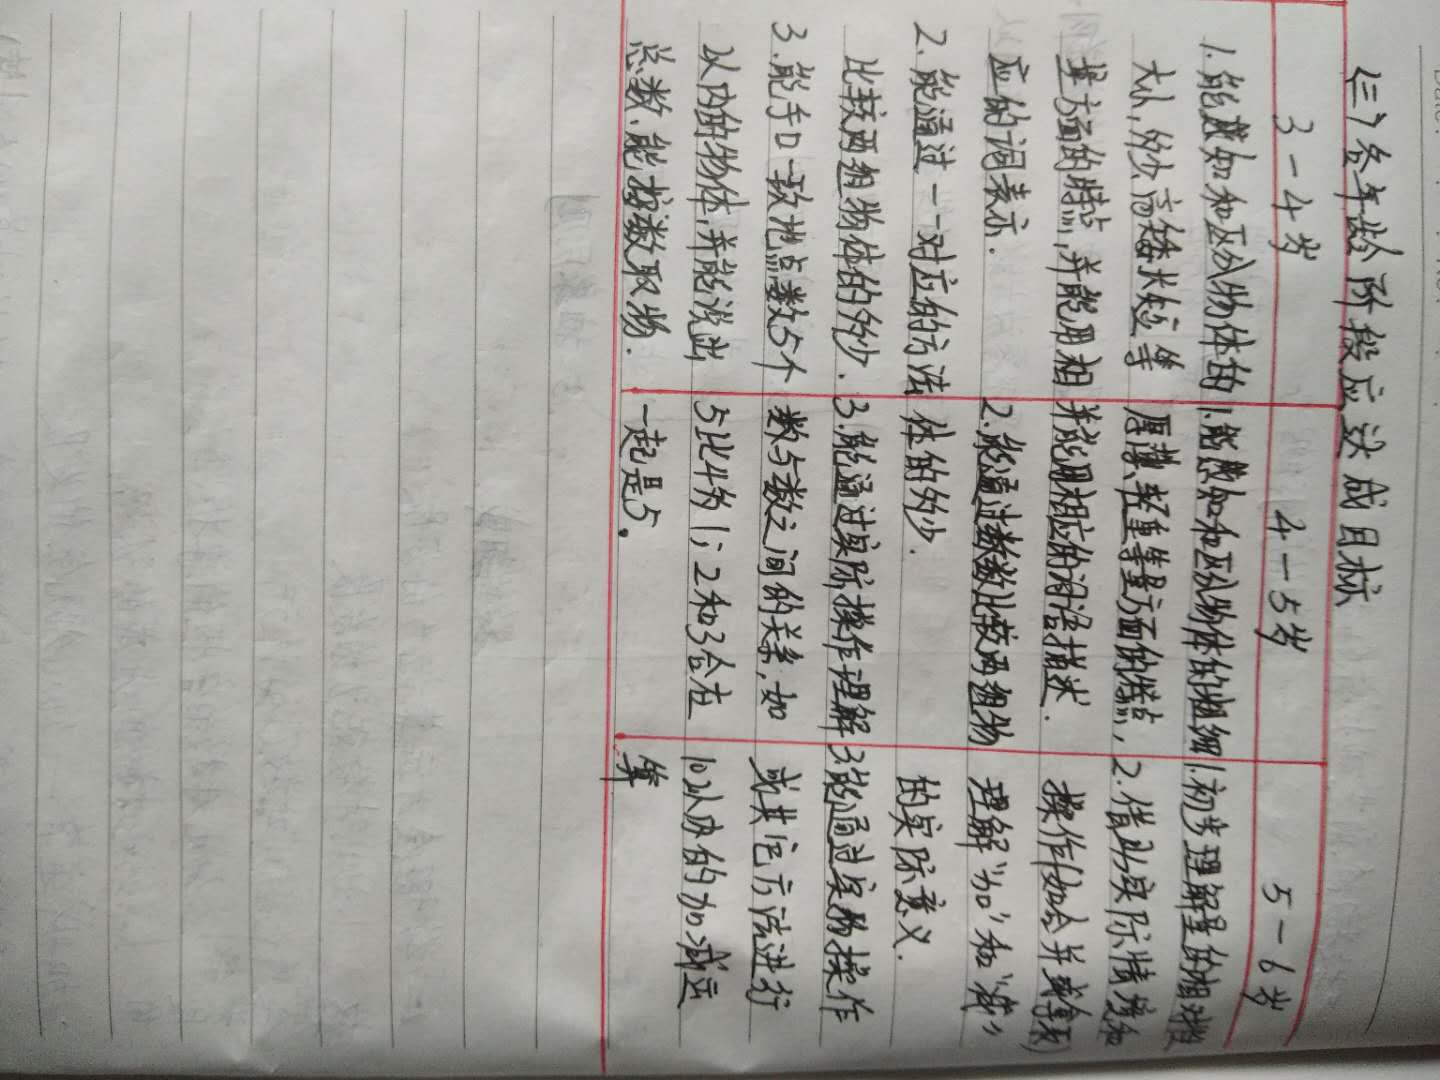 (三)各年龄阶段应达成目标
3—4岁
1.能感知和区分物体的
大小,多少高矮长短等
量方面的特点,并能用相
应的词表示.
2.能通过一一对应的方法
比较两组物体的多少.
3.能手口一致地点数5个
以内的物体,并能说出
总数、能按数取物.
4—5岁
1.能感知和区分物体的粗细
厚薄、轻重等量方面的特点,
并能用相应的词语描述.
2.能通过数数比较两组物
体的多少.
3.能通过实际操作理解
数与数之间的关系,如
5比4多1;2和3合在
一起是5。
5—6岁
1.初步理解量的相对性
2.借助实际情境和
操作(如合并或拿取)
理解“加”和“减”
的实际意义.
3.能通过实物操作
或其它方法进行
10以内的加减运
算